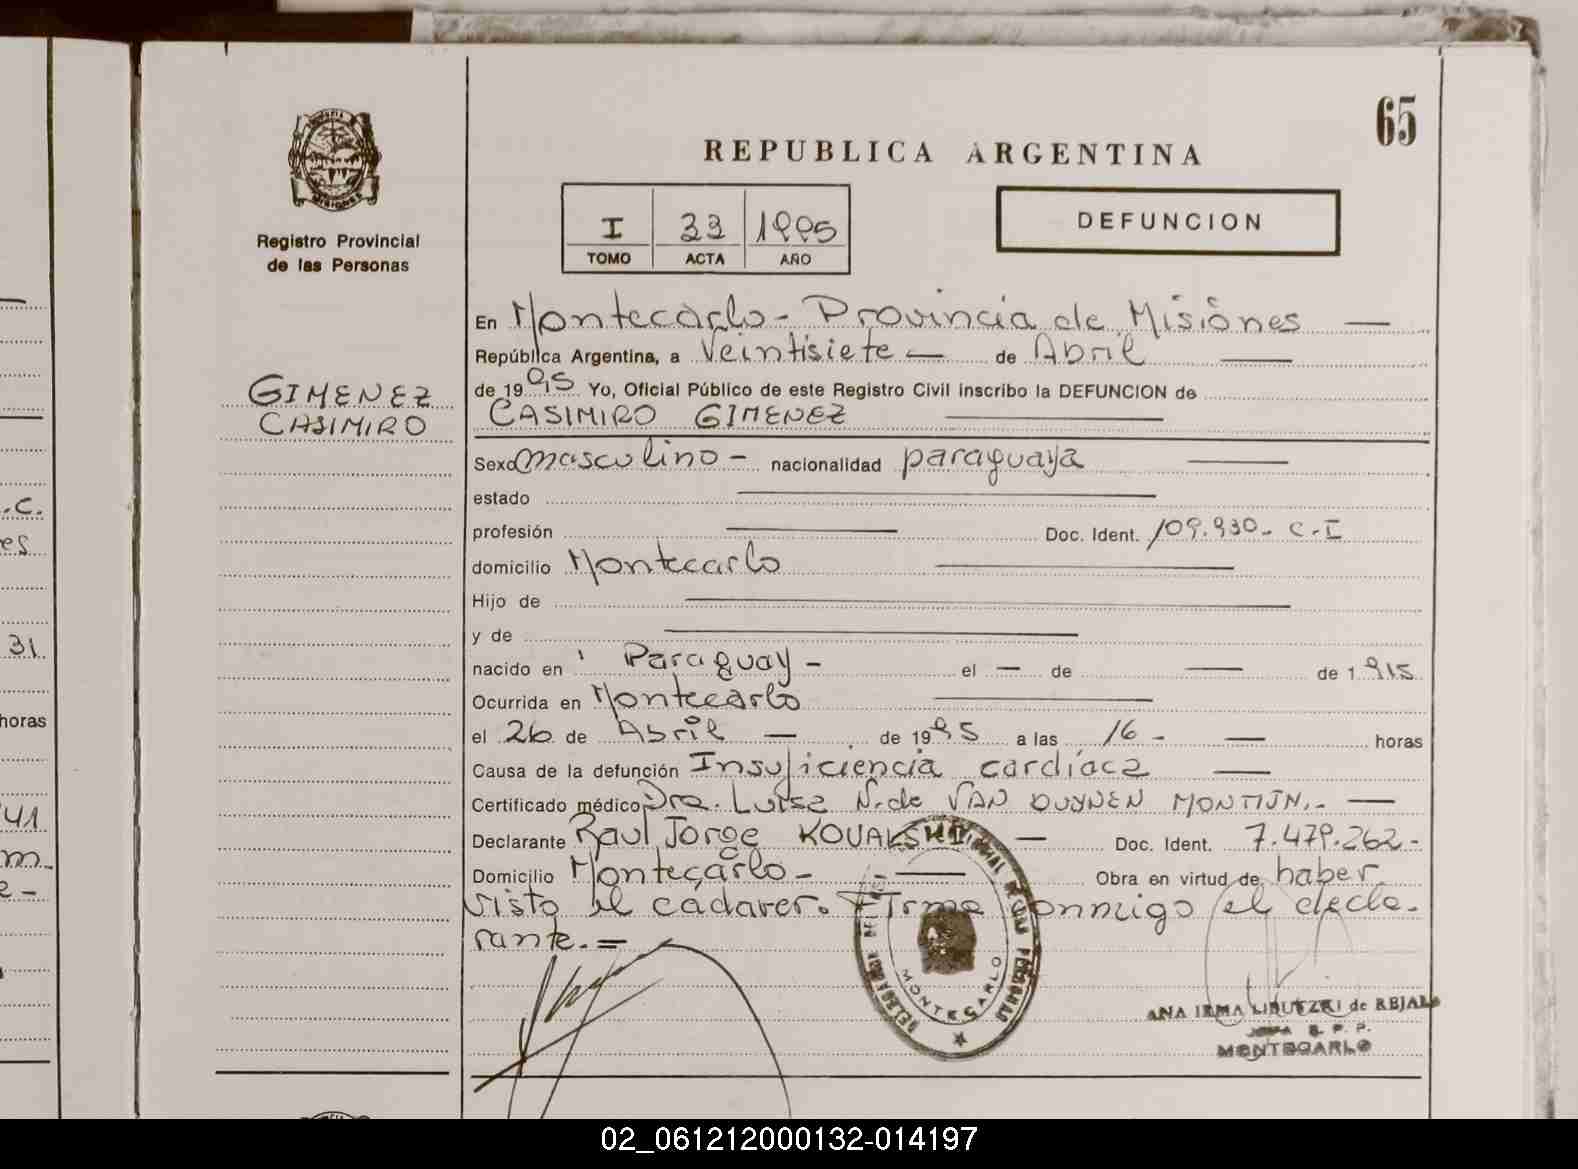 65
REPUBLICA ARGENTINA
MISIONES
Registro Provincial
de las Personas
I 33 1995
TOMO ACTA AÑO
DEFUNCION
GIMENEZ
CASIMIRO
En Montecarlo - Provincia de Misiones —
República Argentina, a Veintisiete — de Abril —
de 1995 Yo, Oficial Público de este Registro Civil inscribo la DEFUNCION de
CASIMIRO GIMENEZ —
Sexo masculino - nacionalidad paraguaya —
estado —
profesión — Doc. Ident. 109.930- C-I
domicilio Montecarlo —
Hijo de —
y de —
nacido en Paraguay - el — de — de 1915
Ocurrida en Montecarlo —
el 26 de Abril — de 1995 a las 16 - — horas
Causa de la defunción Insuficiencia cardíaca —
Certificado médico Dra. Luisa N. de VAN DUYNEN MONTIJN.- —
Declarante Raul Jorge KOVALSKI — Doc. Ident. 7.479.262-
Domicilio Montecarlo - — Obra en virtud de haber
visto el cadaver. Firma conmigo el decla-
rante.=
MONTECARLO
ANA IRMA de REJALA
MONTECARLO
.C.
es
31.
horas
41
m
e -
02_061212000132-014197